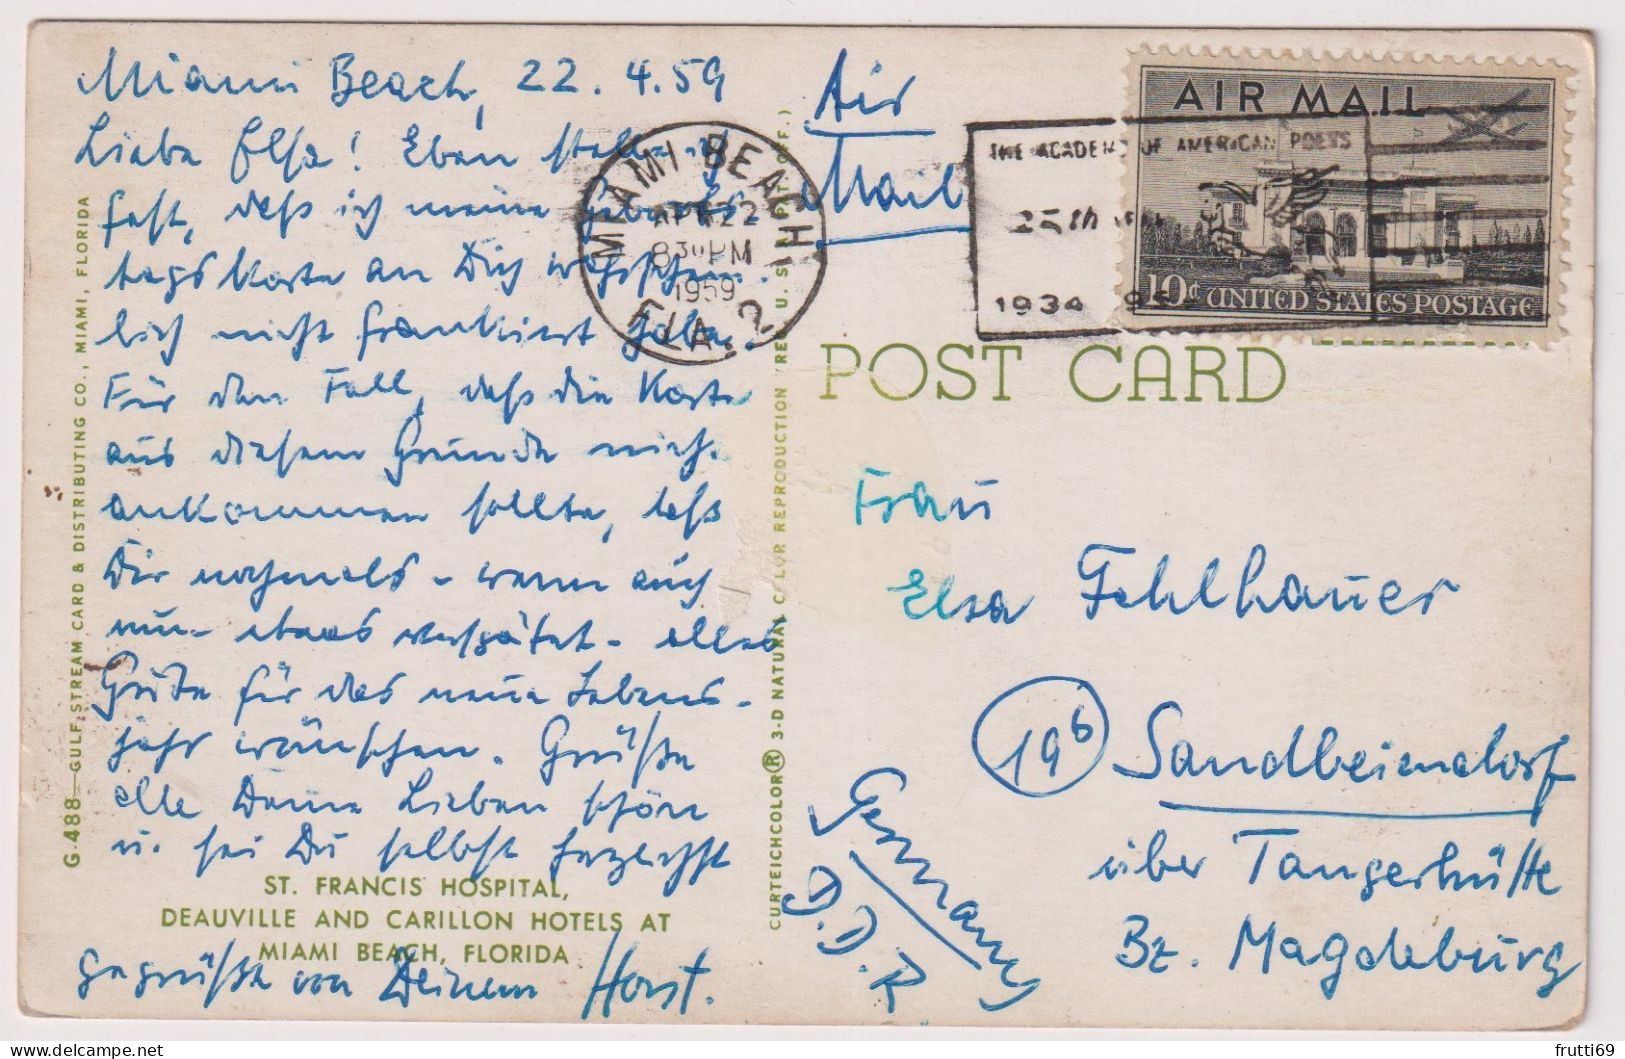 Miami Beach, 22.4.59
Liebe Elsa! Eben stelle ich
fest, daß ich meine Geburts-
tagskarte an Dich wahrschein-
lich nicht frankiert habe.
Für den Fall, daß die Karte
aus diesem Grunde nicht
ankommen sollte, laß
Dir nochmals – wenn auch
nun etwas verspätet – alles
Gute für das neue Lebens-
jahr wünschen. Grüße
alle Deine Lieben schön
u. sei Du selbst herzlichst
gegrüßt von Deinem Horst.
ST. FRANCIS HOSPITAL,
DEAUVILLE AND CARILLON HOTELS AT
MIAMI BEACH, FLORIDA
G-488—GULF STREAM CARD & DISTRIBUTING CO., MIAMI, FLORIDA
CURTEICHCOLOR® 3-D NATURAL COLOR REPRODUCTION (REG. U. S. PAT. OFF.)
MIAMI BEACH
APR 22
830 PM
1959
FLA. 2
Air
Mail
THE ACADEMY OF AMERICAN POETS
25th
1934 195
AIR MAIL
10¢ UNITED STATES POSTAGE
POST CARD
Frau
Elsa Fehlhauer
19b Sandbeiendorf
über Tangerhütte
Bz. Magdeburg
Germany
D.D.R
frutti69